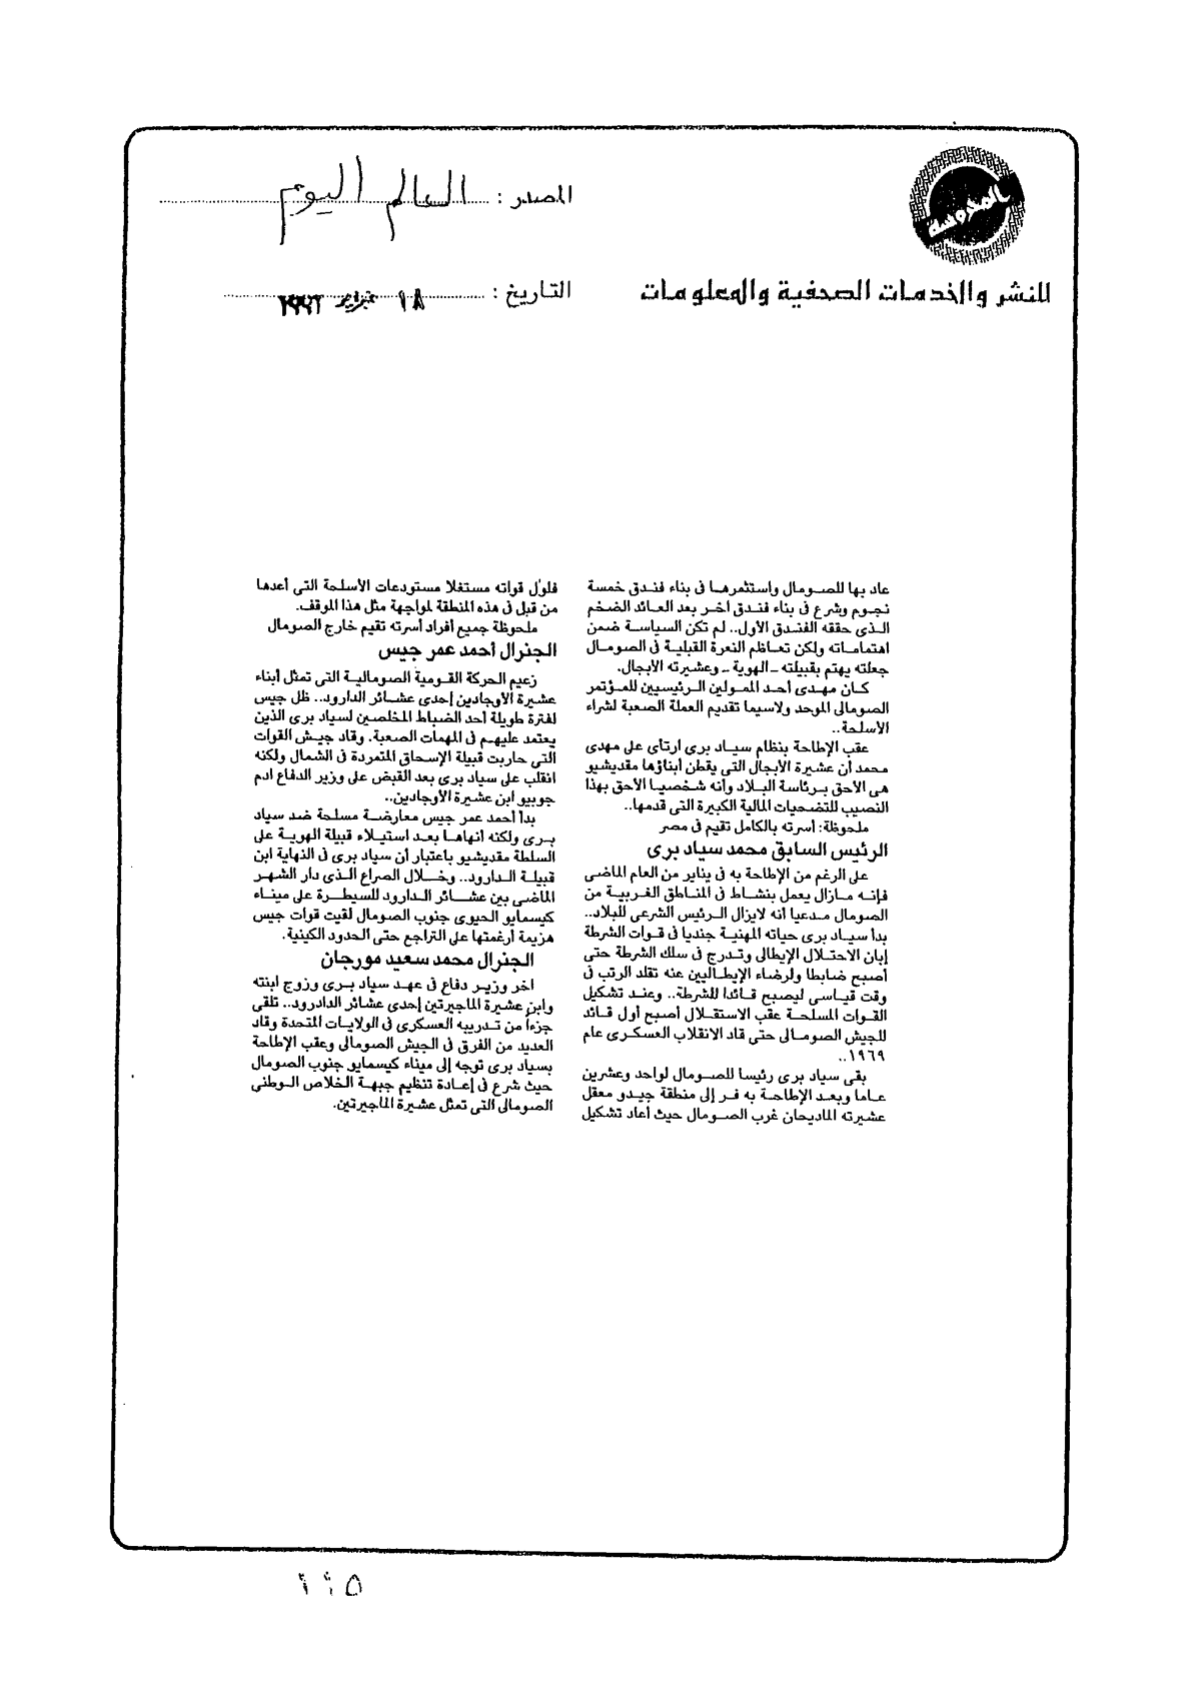 المصدر : العالم اليوم
للنشر والخدمات الصحفية والمعلومات
التاريخ : ١٨ فبراير ١٩٩٢
عاد بها للصومال واستثمرها فى بناء فندق خمسة
نجوم وشرع فى بناء فندق اخر بعد العائد الضخم
الذى حققه الفندق الأول.. لم تكن السياسة ضمن
اهتماماته ولكن تعاظم النعرة القبلية فى الصومال
جعلته يهتم بقبيلته ـ الهوية ـ وعشيرته الأبجال.
كان مهدى أحد الممولين الرئيسيين للمؤتمر
الصومالى الموحد ولاسيما تقديم العملة الصعبة لشراء
الأسلحة..
عقب الإطاحة بنظام سياد برى ارتأى على مهدى
محمد أن عشيرة الأبجال التى يقطن أبناؤها مقديشيو
هى الأحق برئاسة البلاد وأنه شخصيا الأحق بهذا
النصيب للتضحيات المالية الكبيرة التى قدمها..
ملحوظة: أسرته بالكامل تقيم فى مصر
الرئيس السابق محمد سياد برى
على الرغم من الإطاحة به فى يناير من العام الماضى
فإنه مازال يعمل بنشاط فى المناطق الغربية من
الصومال مدعيا أنه لايزال الرئيس الشرعى للبلاد..
بدأ سياد برى حياته المهنية جنديا فى قوات الشرطة
إبان الاحتلال الإيطالى وتدرج فى سلك الشرطة حتى
أصبح ضابطا ولرضاء الإيطاليين عنه تقلد الرتب فى
وقت قياسى ليصبح قائدا للشرطة.. وعند تشكيل
القوات المسلحة عقب الاستقلال أصبح أول قائد
للجيش الصومالى حتى قاد الانقلاب العسكرى عام
١٩٦٩..
بقى سياد برى رئيسا للصومال لواحد وعشرين
عاما وبعد الإطاحة به فر إلى منطقة جيدو معقل
عشيرته الماديحان غرب الصومال حيث أعاد تشكيل
فلول قواته مستغلا مستودعات الأسلحة التى أعدها
من قبل فى هذه المنطقة لمواجهة مثل هذا الموقف.
ملحوظة جميع أفراد أسرته تقيم خارج الصومال
الجنرال أحمد عمر جيس
زعيم الحركة القومية الصومالية التى تمثل أبناء
عشيرة الأوجادين إحدى عشائر الدارود.. ظل جيس
لفترة طويلة أحد الضباط المخلصين لسياد برى الذين
يعتمد عليهم فى المهمات الصعبة. وقاد جيش القوات
التى حاربت قبيلة الإسحاق المتمردة فى الشمال ولكنه
انقلب على سياد برى بعد القبض على وزير الدفاع ادم
جوبيو ابن عشيرة الأوجادين..
بدأ أحمد عمر جيس معارضة مسلحة ضد سياد
برى ولكنه أنهاها بعد استيلاء قبيلة الهوية على
السلطة مقديشيو باعتبار أن سياد برى فى النهاية ابن
قبيلة الدارود.. وخلال الصراع الذى دار الشهر
الماضى بين عشائر الدارود للسيطرة على ميناء
كيسمايو الحيوى جنوب الصومال لقيت قوات جيس
هزيمة أرغمتها على التراجع حتى الحدود الكينية.
الجنرال محمد سعيد مورجان
اخر وزير دفاع فى عهد سياد برى وزوج ابنته
وابن عشيرة الماجيرتين إحدى عشائر الدادرود.. تلقى
جزءاً من تدريبه العسكرى فى الولايات المتحدة وقاد
العديد من الفرق فى الجيش الصومالى وعقب الإطاحة
بسياد برى توجه إلى ميناء كيسمايو جنوب الصومال
حيث شرع فى إعادة تنظيم جبهة الخلاص الوطنى
الصومالى التى تمثل عشيرة الماجيرتين.